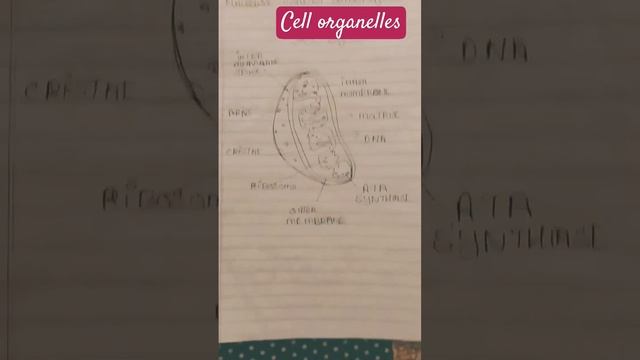 Cell organelles
INTER
SPACE
INNER
MEMBRANE
MATRIX
DNA
CRISTAE
RIBOSOME
ATA
SYNTHASE
OUTER
MEMBRANE
DNA
CRISTAE
ATA
SYNTHASE